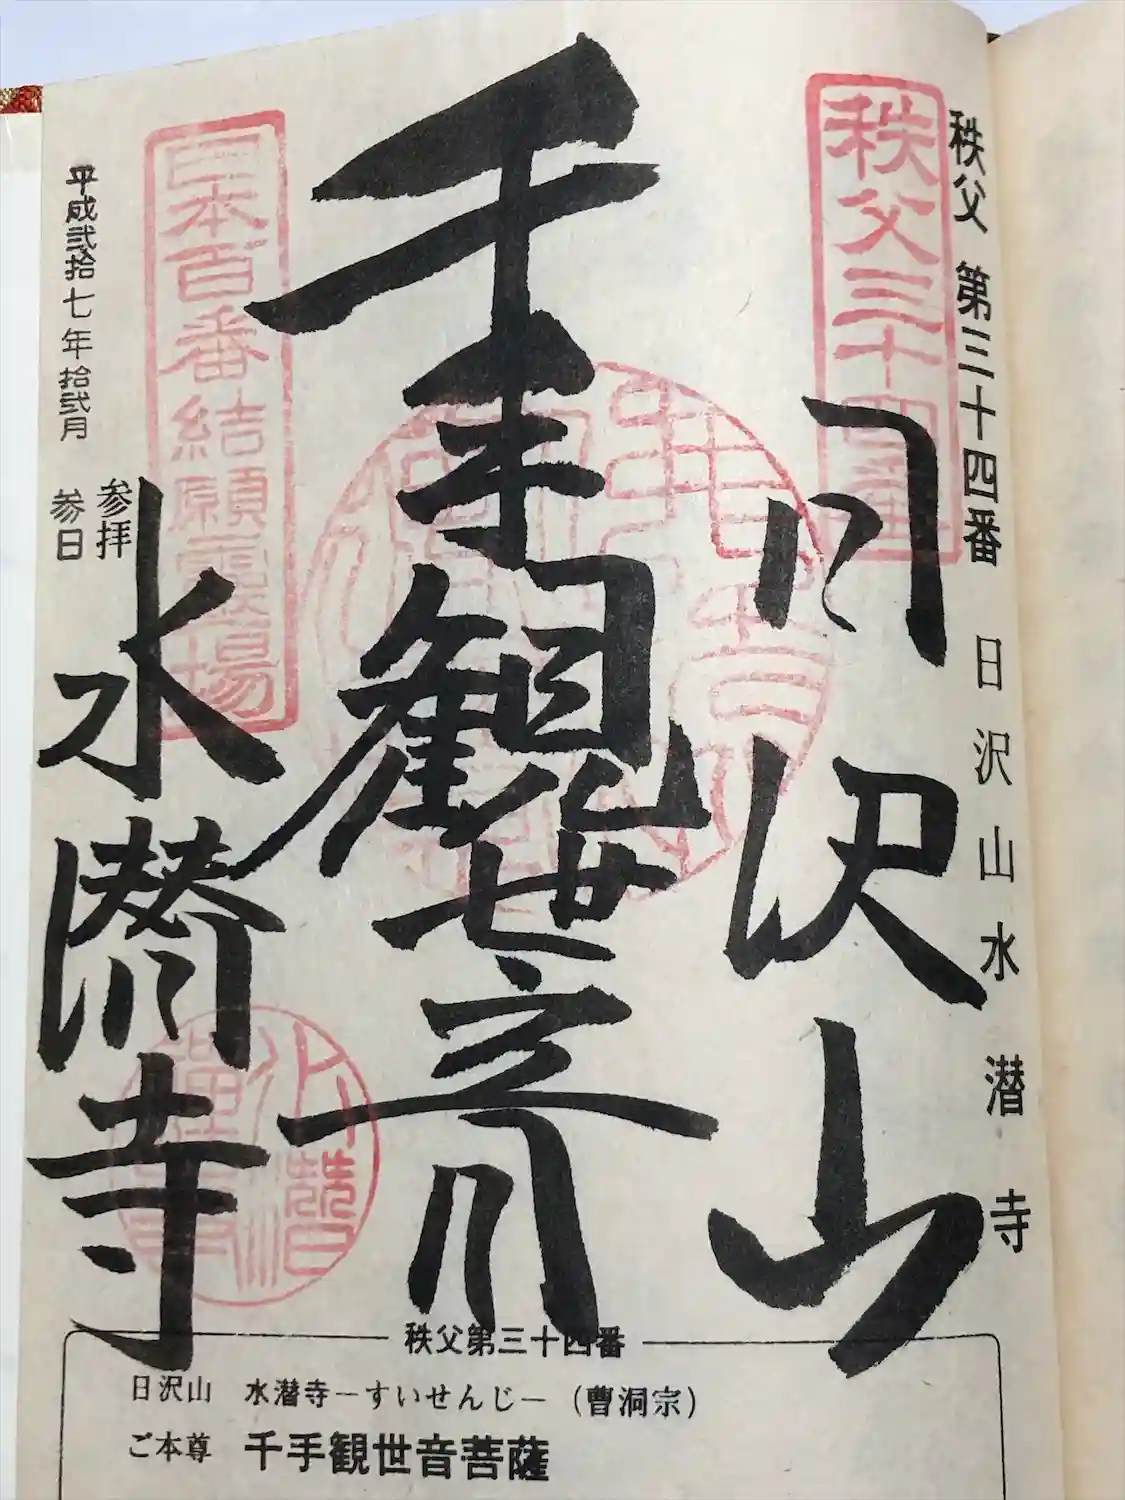 秩父 第三十四番 日沢山水潜寺
秩父三十四番
日沢山
千手観世音
水潜寺
日本百番結願霊場
参拝
平成弐拾七年拾弐月参日
秩父第三十四番
日沢山 水潜寺－すいせんじ－（曹洞宗）
ご本尊 千手観世音菩薩